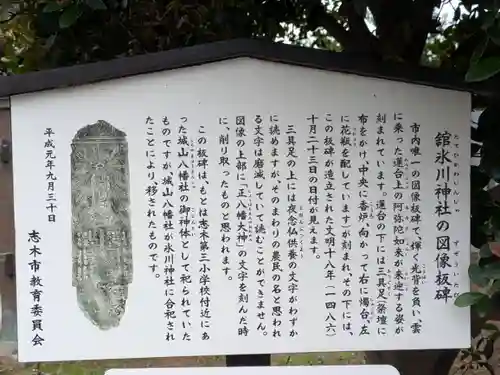 舘氷川神社の図像板碑
たてひかわじんじゃ ずぞういたび
市内唯一の図像板碑で、輝く光背を負い、雲
に乗った蓮台上の阿弥陀如来が来迎する姿が
刻まれています。蓮台の下には三具足(祭壇に
布をかけ、中央に香炉、向かって右に燭台、左
に花瓶を配しています)が刻まれ、その下には、
この板碑が造立された文明十八年(一四八六)
十月二十三日の日付が見えます。
三具足の上には夜念仏供養の文字がわずか
に眺めますが、そのまわりの農民の名と思われ
る文字は磨滅していて読むことができません。
図像の上部に「正八幡大神」の文字を刻んだ時
に、削り取ったものと思われます。
この板碑は、もとは志木第三小学校付近にあ
った城山八幡社の御神体として祀られていた
ものですが、城山八幡社が氷川神社に合祀され
たことにより移されたものです。
平成元年九月三十日
志木市教育委員会